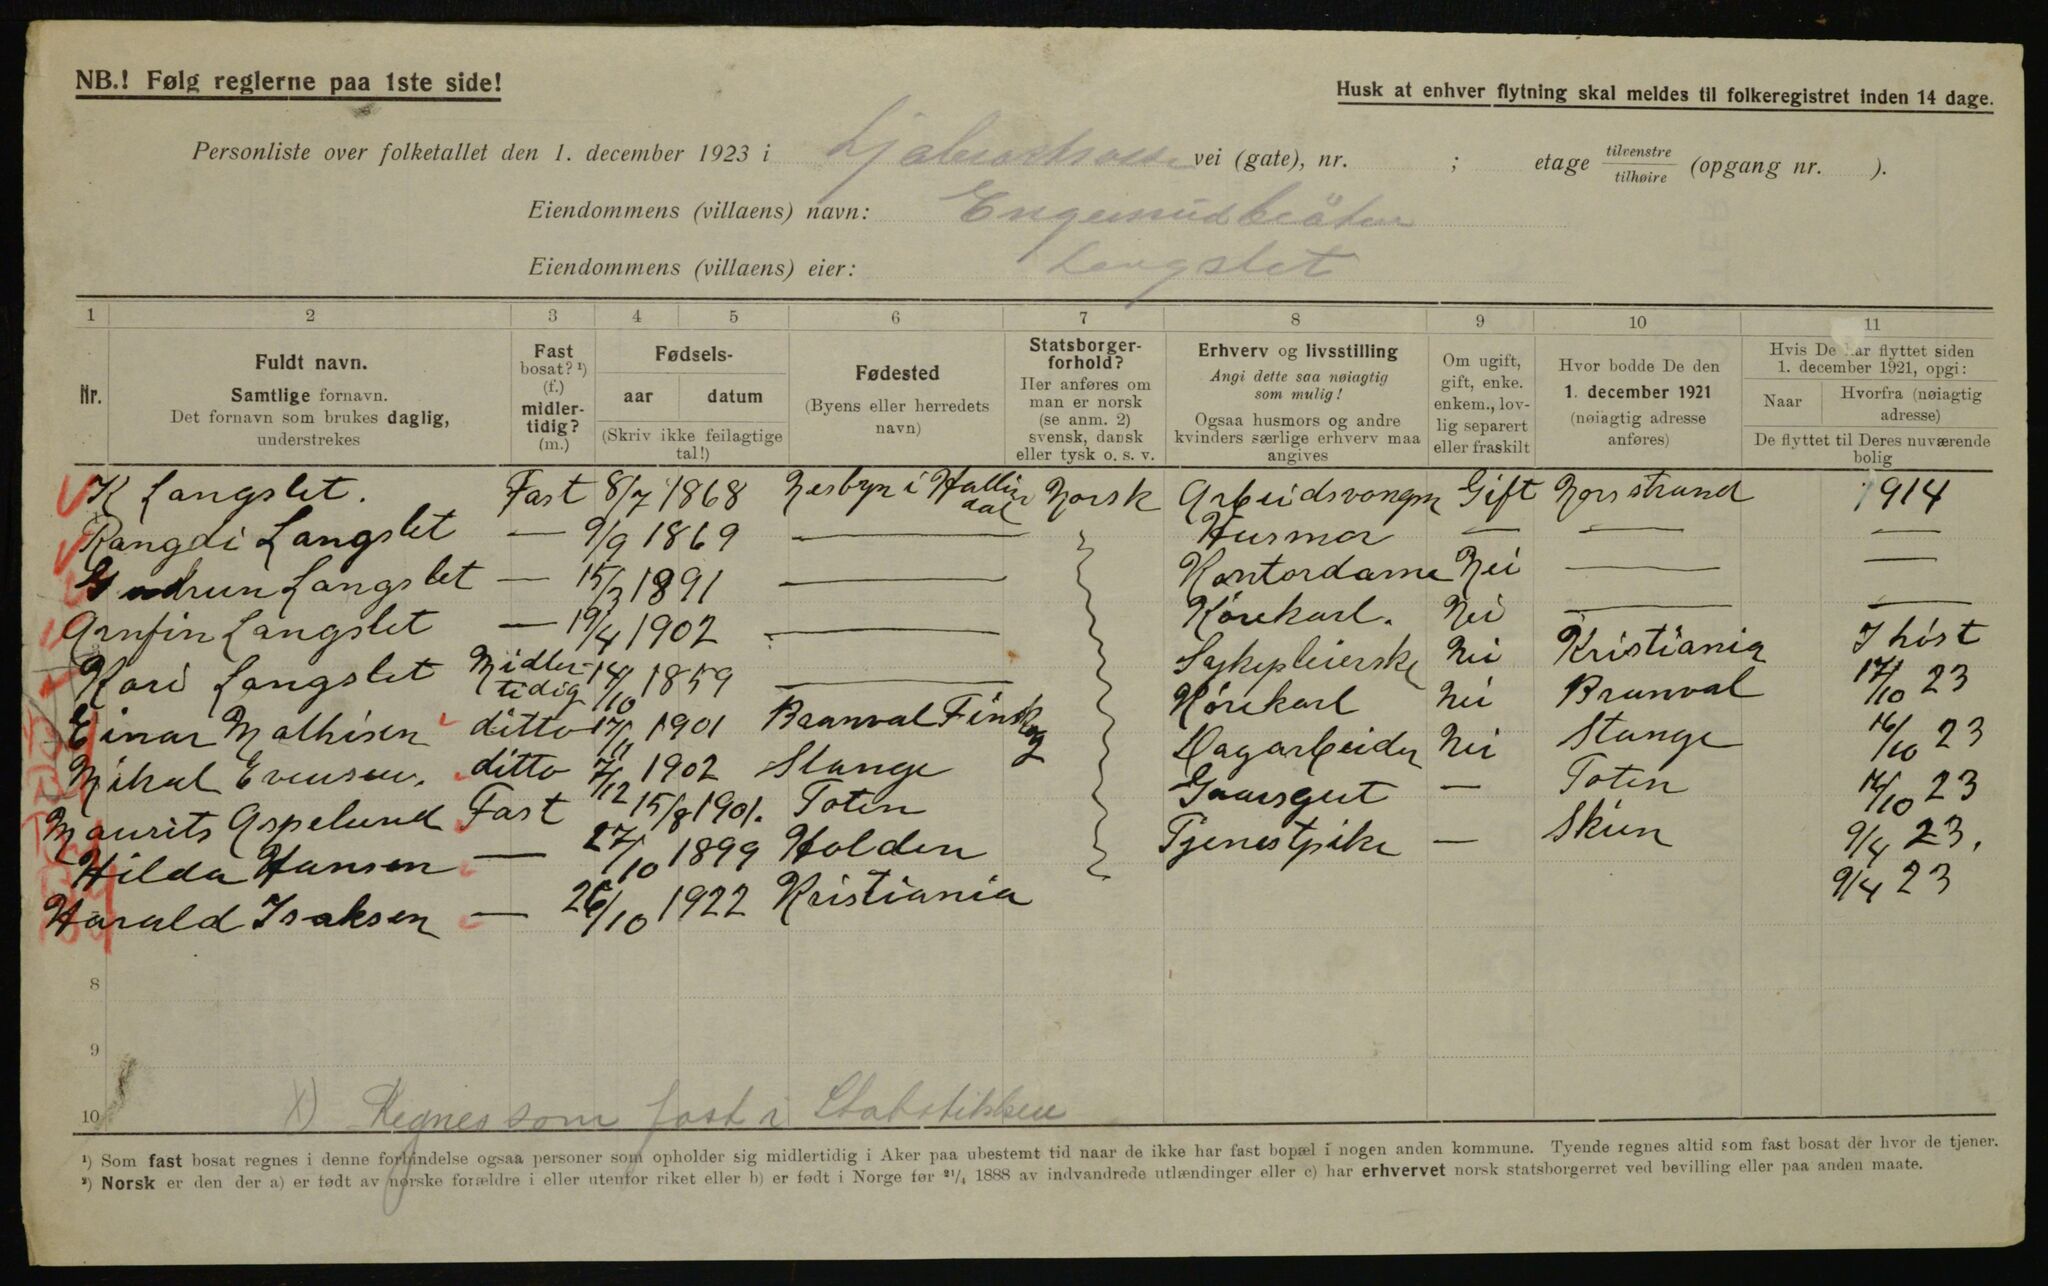 NB.! Følg reglerne paa 1ste side!
Husk at enhver flytning skal meldes til folkeregistret inden 14 dage.
Personliste over folketallet den 1. december 1923 i vei (gate), nr. ; etage tilvenstre tilhøire (opgang nr. ).
Eiendommens (villaens) navn:
Eiendommens (villaens) eier: Langslet
1 2 3 4 5 6 7 8 9 10 11
Nr.
Fuldt navn.
Samtlige fornavn.
Det fornavn som brukes daglig,
understrekes
Fast
bosat? ¹)
(f.)
midler-
tidig?
(m.)
Fødsels-
aar datum
(Skriv ikke feilagtige
tal!)
Fødested
(Byens eller herredets
navn)
Statsborger-
forhold?
Her anføres om
man er norsk
(se anm. 2)
svensk, dansk
eller tysk o. s. v.
Erhverv og livsstilling
Angi dette saa nøiagtig
som mulig!
Ogsaa husmors og andre
kvinders særlige erhverv maa
angives
Om ugift,
gift, enke.
enkem., lov-
lig separert
eller fraskilt
Hvor bodde De den
1. december 1921
(nøiagtig adresse
anføres)
Hvis De har flyttet siden
1. december 1921, opgi:
Naar
Hvorfra (nøiagtig
adresse)
De flyttet til Deres nuværende
bolig
K Langslet. Fast 8/7 1868 Nesbyn i Norsk Gift 1914
Langslet — 9/9 1869 — Husmor — — —
Gudrun Langslet — 15/3 1891 — Kontordame Nei — —
Arnfin Langslet — 19/4 1902 — Kørekarl. Nei — —
Kari Langslet Midler-
tidig 14/10 1859 — Sykepleierske Nei Kristiania I høst
Einar Mathisen ditto 17/11 1901 Branval Finskog Kørekarl Nei Branval 17/10 23
Evensen. ditto 7/12 1902 Stange Dagarbeider Nei Stange 16/10 23
Maurits Aspelund Fast 15/8 1901. Toten Gaarsgut — Toten 14/10 23
Hilda Hansen — 27/10 1899 Holden Tjenestpike — Skien 9/4 23.
Harald Isaksen — 26/10 1922 Kristiania 9/4 23
8
9
10
X) Regnes som fast i Statstikken
¹) Som fast bosat regnes i denne forbindelse ogsaa personer som opholder sig midlertidig i Aker paa ubestemt tid naar de ikke har fast bopæl i nogen anden kommune. Tyende regnes altid som fast bosat der hvor de tjener.
²) Norsk er den der a) er født av norske forældre i eller utenfor riket eller b) er født i Norge før ²¹/₄ 1888 av indvandrede utlændinger eller c) har erhvervet norsk statsborgerret ved bevilling eller paa anden maate.